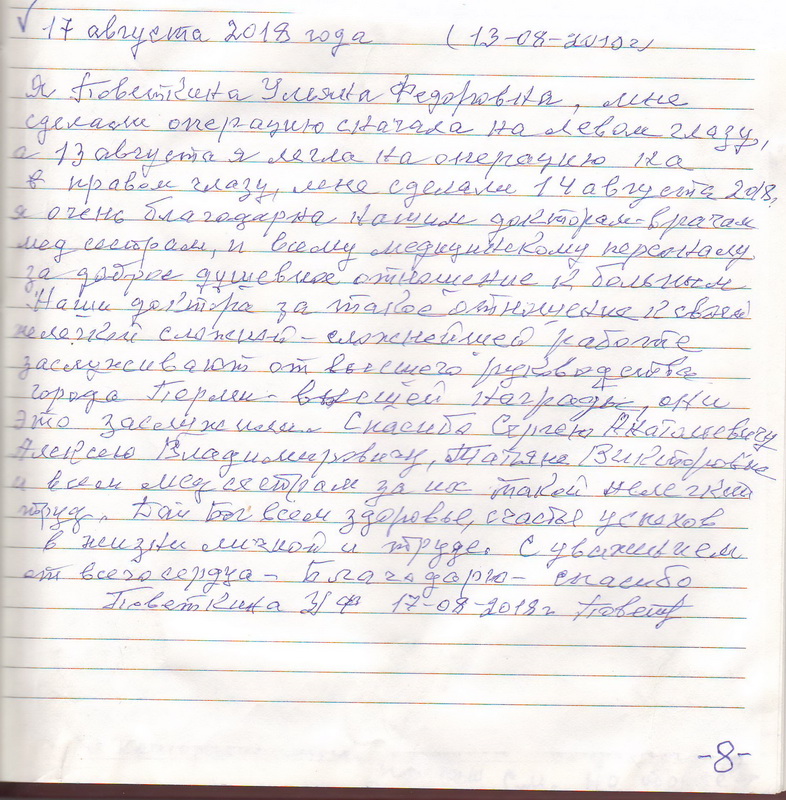 √ 17 августа 2018 года (13-08-2018г)
Я Поветкина Ульяна Федоровна, мне
сделали операцию сначала на левом глазу,
а 13 августа я легла на операцию на
в правом глазу, мне сделали 14 августа 2018,
я очень благодарна нашим докторам-врачам
мед сестрам, и всему медицинскому персоналу.
за доброе душевное отношение к больным
Наши доктора за такое отношение к своей
нелегкой сложной - сложнейшей работе
заслуживают от высшего руководства
города Перми - высшей награды, они
это заслужили. Спасибо Сергею Анатольевичу
Алексею Владимировичу, Татьяне Викторовне
и всем мед сестрам за их такой нелегкий
труд. Дай Бог всем здоровье, счастье успехов
в жизни личной и труде. С уважением
от всего сердца - Благодарю - спасибо
Поветкина УФ 17-08-2018г Повет
-8-